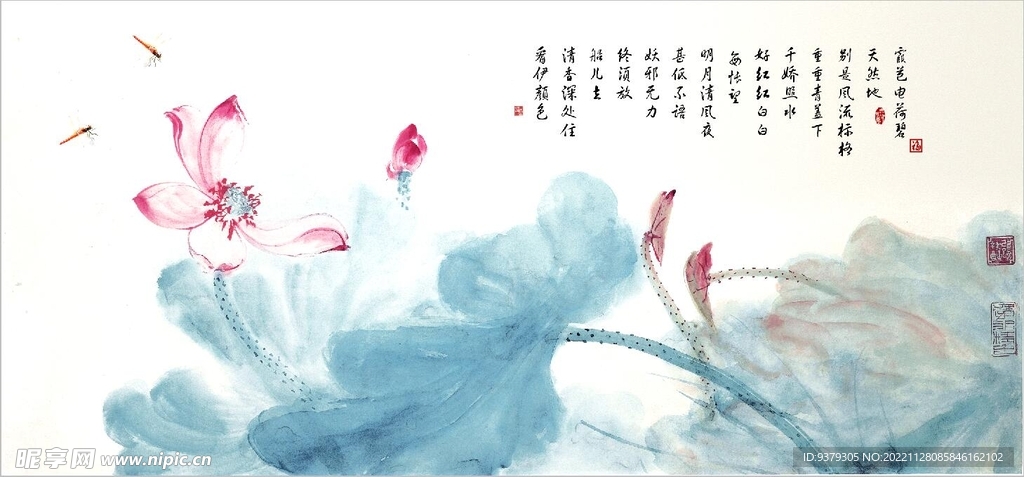 霞苞电荷碧
天然地
别是风流标格
重重青盖下
千娇照水
好红红白白
每怅望
明月清风夜
甚低不语
妖邪无力
终须放
船儿去
清香深处住
看伊颜色
昵享网 www.nipic.cn
ID:9379305 NO:20221128085846162102